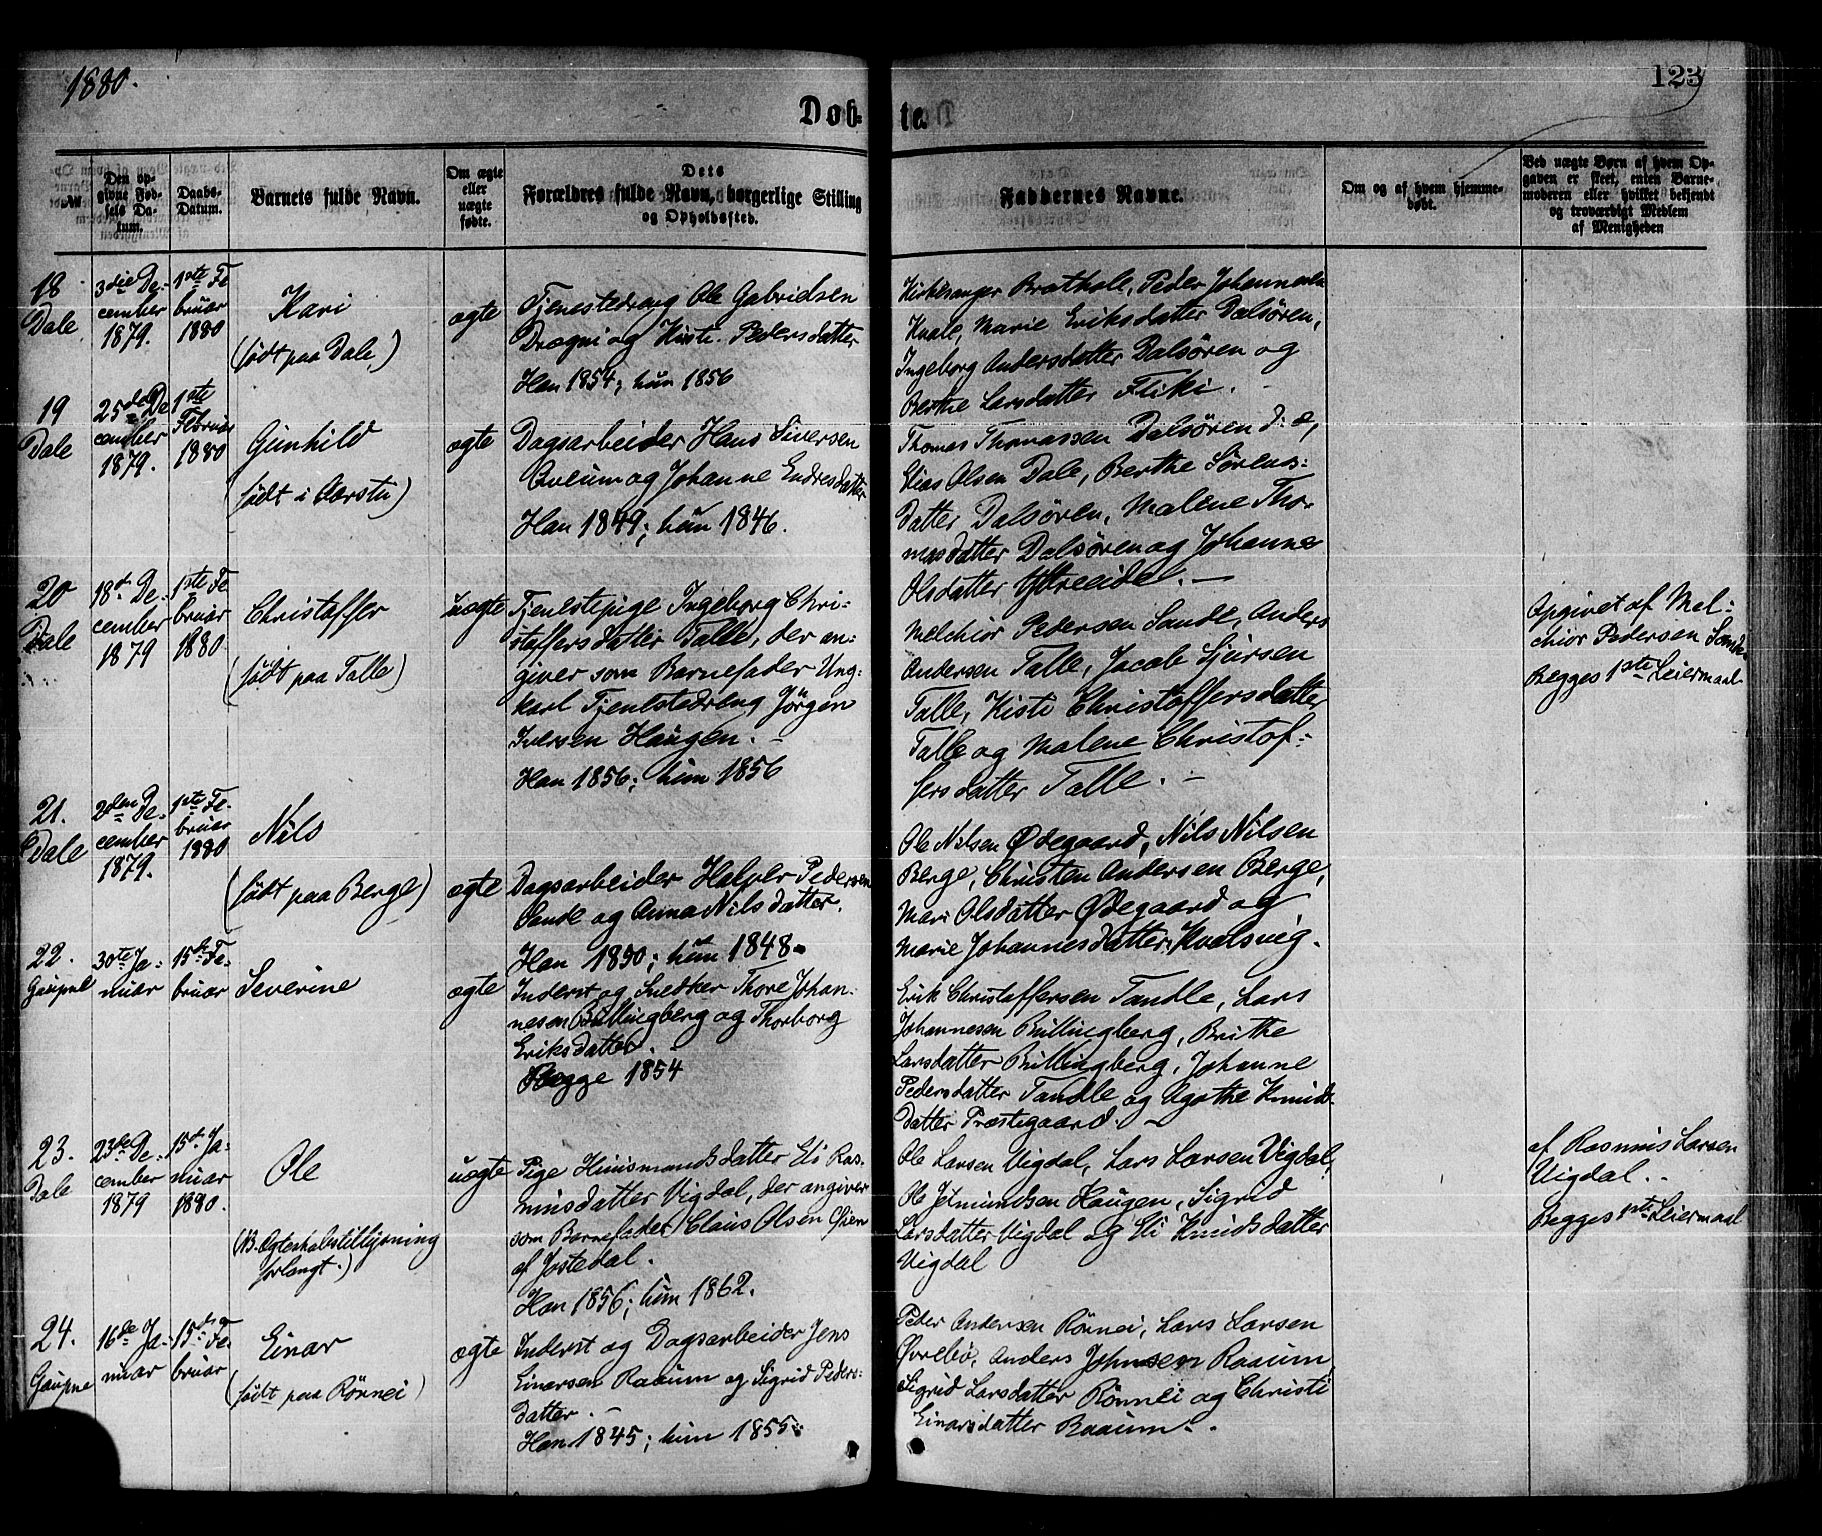 1880.
123
Døb-
te.
№
Den op-
givne Fød-
sels Da-
tum.
Daabs-
Datum.
Barnets fulde Navn.
Om ægte
eller
uægte
fødte.
Dets
Forældres fulde Navn, borgerlige Stilling
og Opholdssted.
Faddernes Navne.
Om og af hvem hjemme-
døbt.
Ved uægte Børn af hvem Op-
gaven er skeet, enten Barne-
moderen eller hvilket bekjendt
og troværdigt Medlem
af Menigheden
18
Dale
3die De-
cember
1879.
1ste Fe
bruar
1880
Kari
(født paa Dale,)
ægte
Tjenestedreng Ole Gabrielsen
Drægni og Kisti Pedersdatter
Han 1854; hun 1856
Kirkesanger Brathole, Peder Johannesen
Kvale, Marie Eriksdatter Dalsøren,
Ingeborg Andersdatter Dalsøren og
Berthe Larsdatter Fliki.
19
Dale
25de De
cember
1879.
1ste
Februar
1880
Gunhild
(født i Aarstu)
ægte
Dagsarbeider Hans Siversen
Qveum og Johanne Endresdatter
Han 1849; hun 1846.
Thomas Thomassen Dalsøren d: æ,
Elias Olsen Dale, Berthe Sørens-
datter Dalsøren, Malene Tho-
masdatter Dalsøren og Johanne
Olsdatter Ytreeide. —
20
Dale
18d De-
cember
1879
1ste Fe
bruar
1880.
Christoffer
(født paa Talle)
uægte
Tjenestepige Ingeborg Chri-
stoffersdatter Talle, der an-
giver som Barnefader Ung-
karl Tjenestedreng Jörgen
Iversen Haugen. —
Han 1856; hun 1856
Melchior Pedersen Sande, Anders
Andersen Talle, Jacob Sjursen
Talle, Kisti Christoffersdatter
Talle og Malene Christof-
fersdatter Talle. —
Opgivet af Mel-
chior Pedersen Sande
Begges 1ste Leiermaal
21.
Dale
2den De-
cember
1879.
1ste Fe-
bruar
1880
Nils
(født paa Berge)
ægte
Dagsarbeider Halper Pedersen
Sande og Anna Nilsdatter.
Han 1850; hun 1848.
Ole Nilsen Ødegaard, Nils Nilsen
Berge, Christen Andersen Berge,
Mari Olsdatter Ødegaard og
Marie Johannesdatter Kvalsvig.
22.
Gaupne
30te Ja-
nuar
15de Fe-
bruar
Severine
ægte
Inderst og Snedker Thore Johan-
nesen Bullingberg og Thorborg
Eriksdatter.
Begge 1854
Erik Christoffersen Tandle, Lars
Johannesen Bullingberg, Brithe
Larsdatter Bullingberg, Johanne
Pedersdatter Tandle og Agathe Knuds-
datter Præstegaard. —
23.
Dale
23de De-
cember
1879
15de Ja-
nuar
1880.
Ole
(NB. Ægteskabstillysning
forlangt.)
uægte
Pige Huusmandsdatter Eli Ras-
musdatter Vigdal, der angiver
som Barnefader Claus Olsen Gjen
af Jostedal.
Han 1856; hun 1862.
Ole Larsen Vigdal, Lars Larsen Vigdal,
Ole Jetmundsen Haugen, Sigrid
Larsdatter Vigdal og Eli Knudsdatter
Vigdal
af Rasmus Larsen
Vigdal. .
Begges 1ste Leiermaal
24.
Gaupne
16de Ja-
nuar
15de Fe-
bruar
Einar
(født paa Rönnei)
ægte
Inderst og Dagsarbeider Jens
Einarsen Raaum og Sigrid Peders-
datter. —
Han 1845; hun 1855.
Peder Andersen Rönnei, Lars Larsen
Øvrebö, Anders Johnsen Raaum,
Sigrid Larsdatter Rönnei og Christi
Einarsdatter Raaum. .